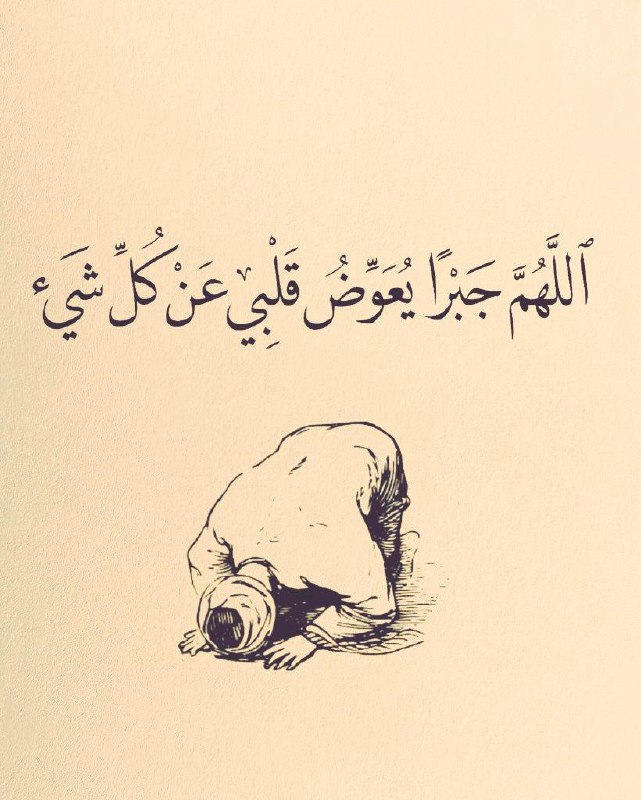 ٱللَّهُمَّ جَبْرًا يُعَوِّضُ قَلْبِي عَنْ كُلِّ شَيْء